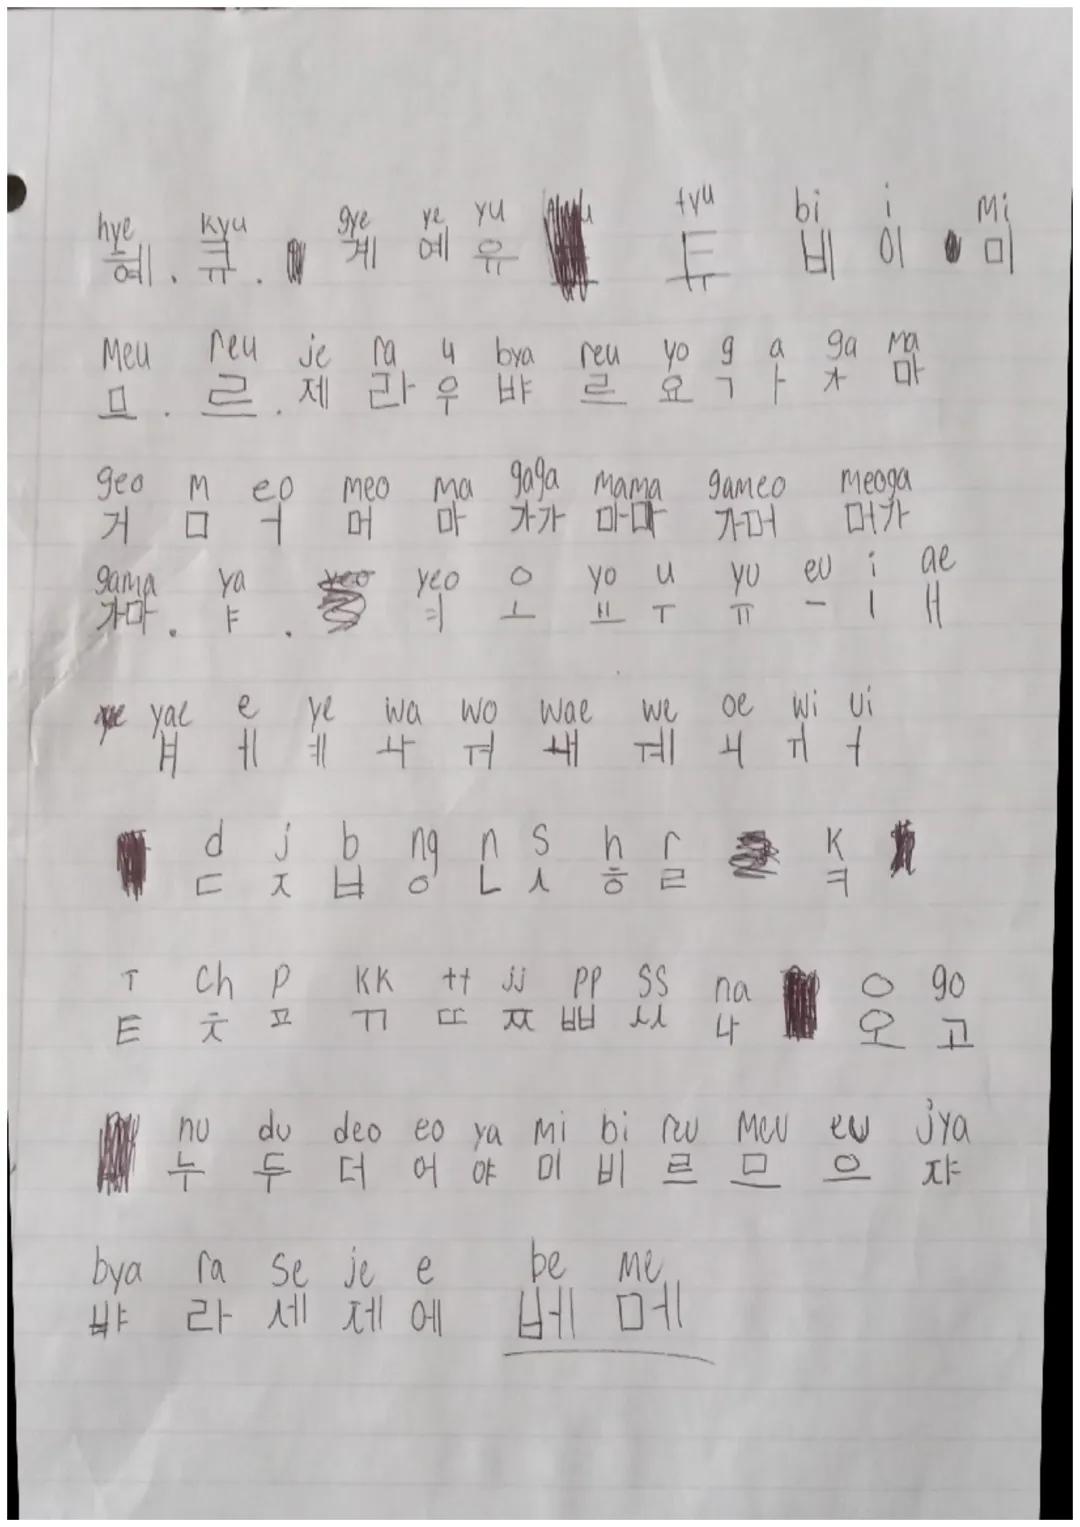 hye kyu gye ye yu tyu bi i mi
혜 . 큐 . 계 예 유 튜 비 이 미
meu reu je ra u bya reu yo g a ga ma
므 . 르 . 제 라 우 뱌 르 요 ㄱ ㅏ 가 마
geo m eo meo ma gaga mama gameo meoga
거 ㅁ ㅓ 머 마 가가 마마 가머 머가
gama ya yeo o yo u yu eu i ae
가마 . ㅑ . ㅕ ㅗ ㅛ ㅜ ㅠ ㅡ ㅣ ㅐ
yae e ye wa wo wae we oe wi ui
ㅒ ㅔ ㅖ ㅘ ㅝ ㅙ ㅞ ㅚ ㅟ ㅢ
d j b ng n s h r k
ㄷ ㅈ ㅂ ㅇ ㄴ ㅅ ㅎ ㄹ ㅋ
T ch p kk tt jj pp ss na o go
ㅌ ㅊ ㅍ ㄲ ㄸ ㅉ ㅃ ㅆ 나 오 고
nu du deo eo ya mi bi reu meu eu jya
누 두 더 어 야 미 비 르 므 으 쟈
bya ra se je e be me
뱌 라 세 제 에 베 메